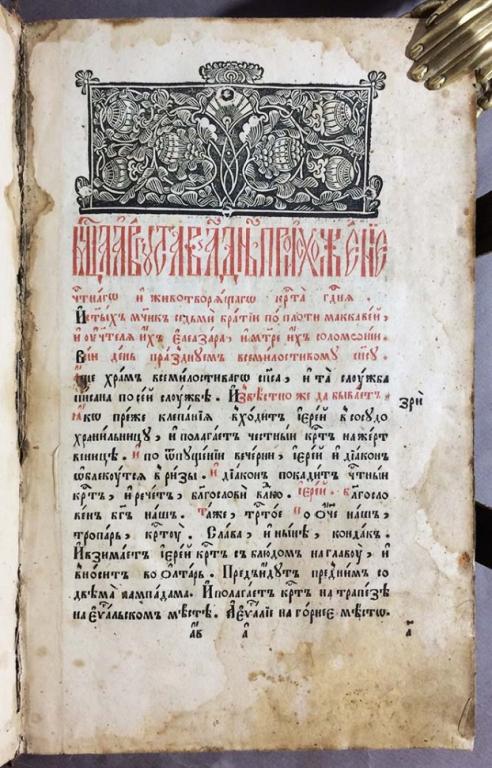 мц҃а а҆́ѵгꙋста в̾ а҃ дн҃ь, происхожде́нїе
чⷭ҇тнагѡ и животворѧщагѡ крⷭ҇та̀ гдⷭ҇нѧ
И҆ст҃ы́хъ мч҃никъ седьми́ бра́тїи по пло́ти маккаве́й,
и҆ оу҆чт҃елѧ и҆́хъ є҆леаза́ра, и҆ мт҃ре и҆́хъ соломо́нїи.
В̾ си́и де́нь пра́зднꙋемъ всеми́лостивомꙋ сп҃сꙋ.
ще хра́мъ всеми́лостиваго сп҃са, и҆ та̀ слꙋ́жба
пи́сана по се́й слꙋ́жбѣ. И҆звѣ́стно же да быва́етъ
ꙗ҆́кѡ пре́же клепа́нїѧ вхо́дитъ і҆ере́й в̾ сосꙋ́до
храни́льницꙋ, и҆ полага́етъ че́стный крⷭ҇тъ на же́рт
венницѣ. и҆ по ѿпꙋще́нїи вече́рни, і҆ере́й и҆ дїа́конъ
ѡ҆блекꙋ́тсѧ в̾ ри́зы. и҆ дїа́конъ покади́тъ чⷭ҇тны́й
крⷭ҇тъ, и҆ рече́тъ, благослови̏ влⷣко. і҆ере́й. благосло
ве́нъ бг҃ъ на́шъ. та́же, трⷭ҇то́е. по ѻ҆́ч҃е на́шъ,
тропа́рь, крⷭ҇тꙋ̀. Сла́ва, и҆ ны́нѣ, конда́къ.
И҆ взима́етъ і҆ере́й крⷭ҇тъ с̾ блю́домъ на главꙋ̀, и҆
вно́ситъ во ѻ҆лта́рь. Преди́дꙋтъ пред̾ ни́мъ со
двѣма̀ лампа́дама. И҆ полага́етъ крⷭ҇тъ на трапе́зѣ
на є҆ѵⷢ҇а́льскомъ мѣ́стѣ. А҆ є҆ѵⷢ҇а́лїе на го́рнее мѣ́сто.
зрѝ
а҃